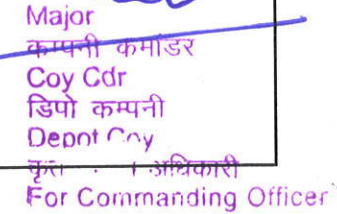 Major
कम्पनी कमांडर
Coy Cdr
डिपो कम्पनी
Depot Coy
कृते अधिकारी
For Commanding Officer